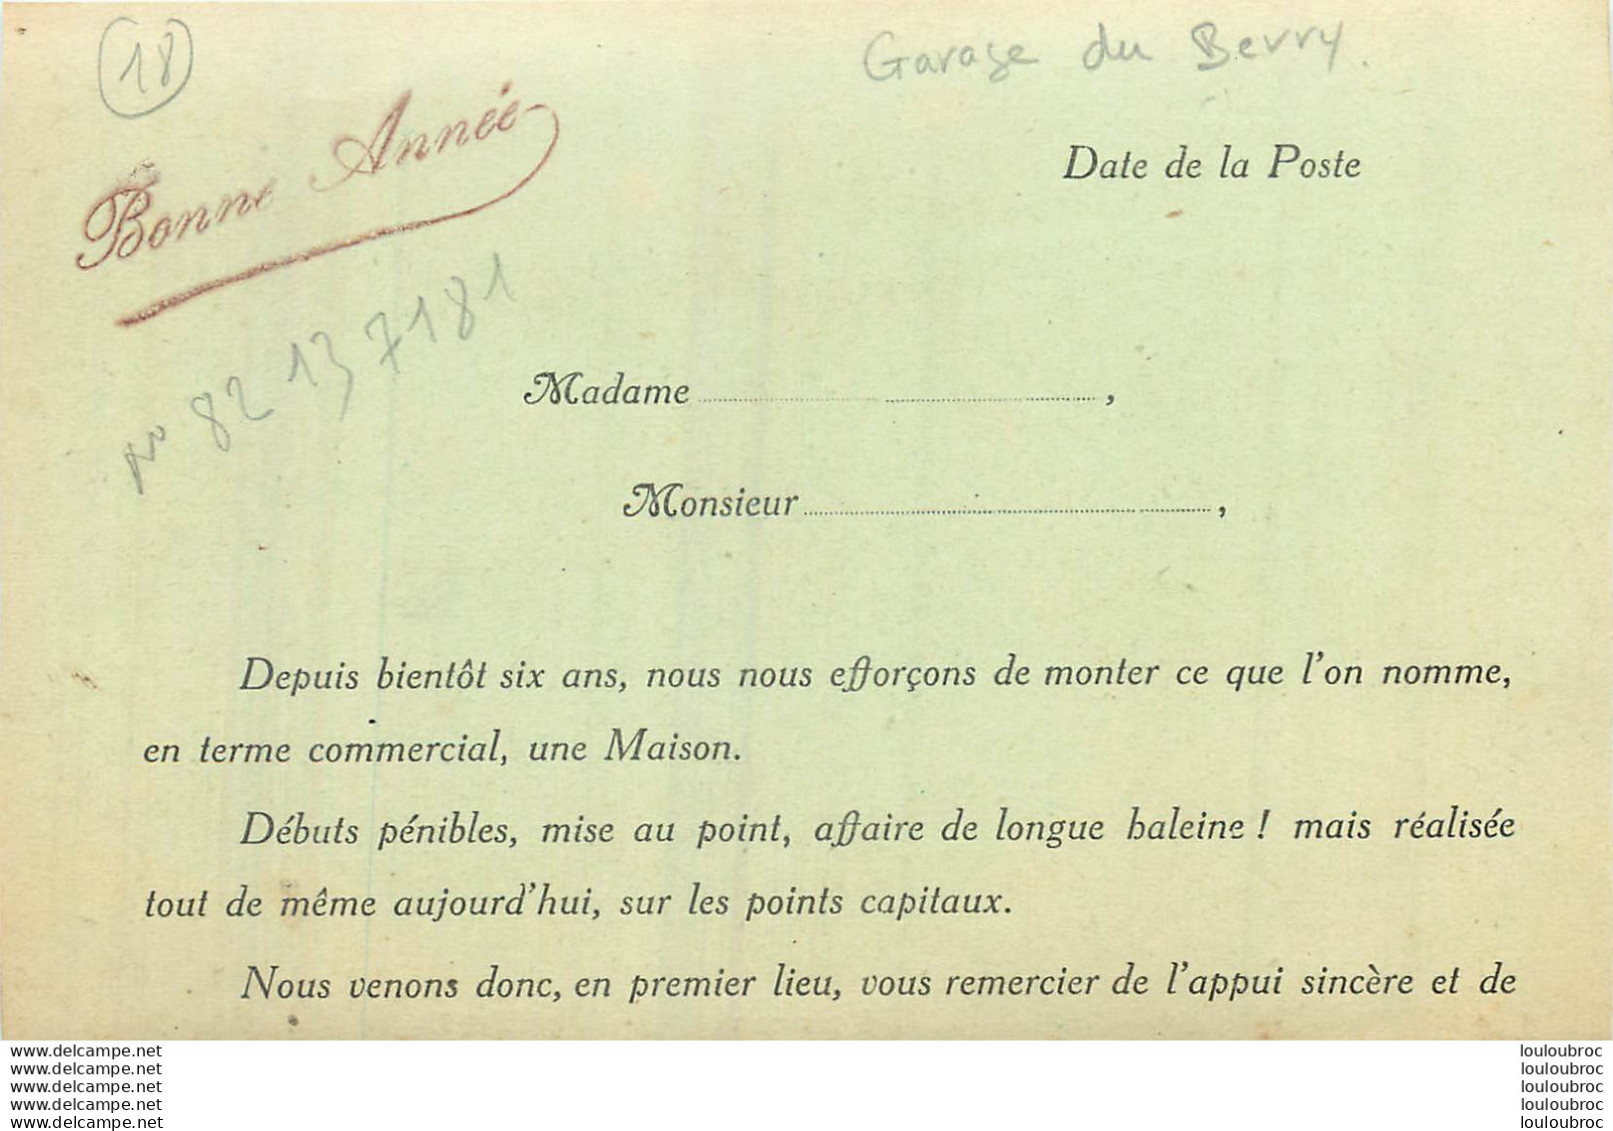 18
Garage du Berry.
Bonne Année
Date de la Poste
no 82 137181
Madame ,
Monsieur ,
Depuis bientôt six ans, nous nous efforçons de monter ce que l'on nomme,
en terme commercial, une Maison.
Débuts pénibles, mise au point, affaire de longue haleine ! mais réalisée
tout de même aujourd'hui, sur les points capitaux.
Nous venons donc, en premier lieu, vous remercier de l'appui sincère et de
www.delcampe.net
www.delcampe.net
www.delcampe.net
www.delcampe.net
www.delcampe.net
louloubroc
louloubroc
louloubroc
louloubroc
louloubroc